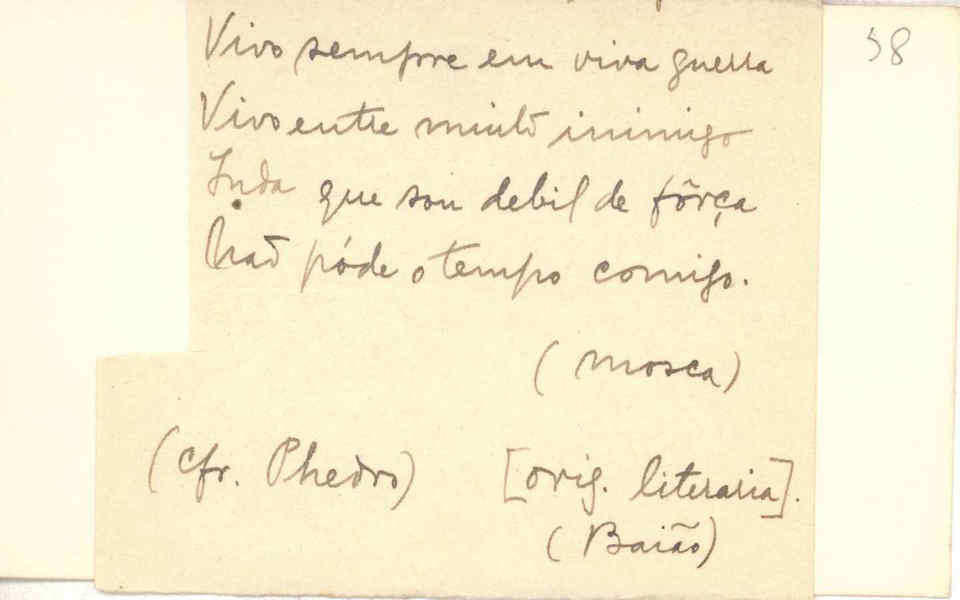 58
Vivo sempre em viva guerra
Vivo entre muito inimigo
Inda que sou debil de fôrça
Naõ póde o tempo comigo.
(mosca)
(Cfr. Phedro) [orig. literaria].
(Baião)